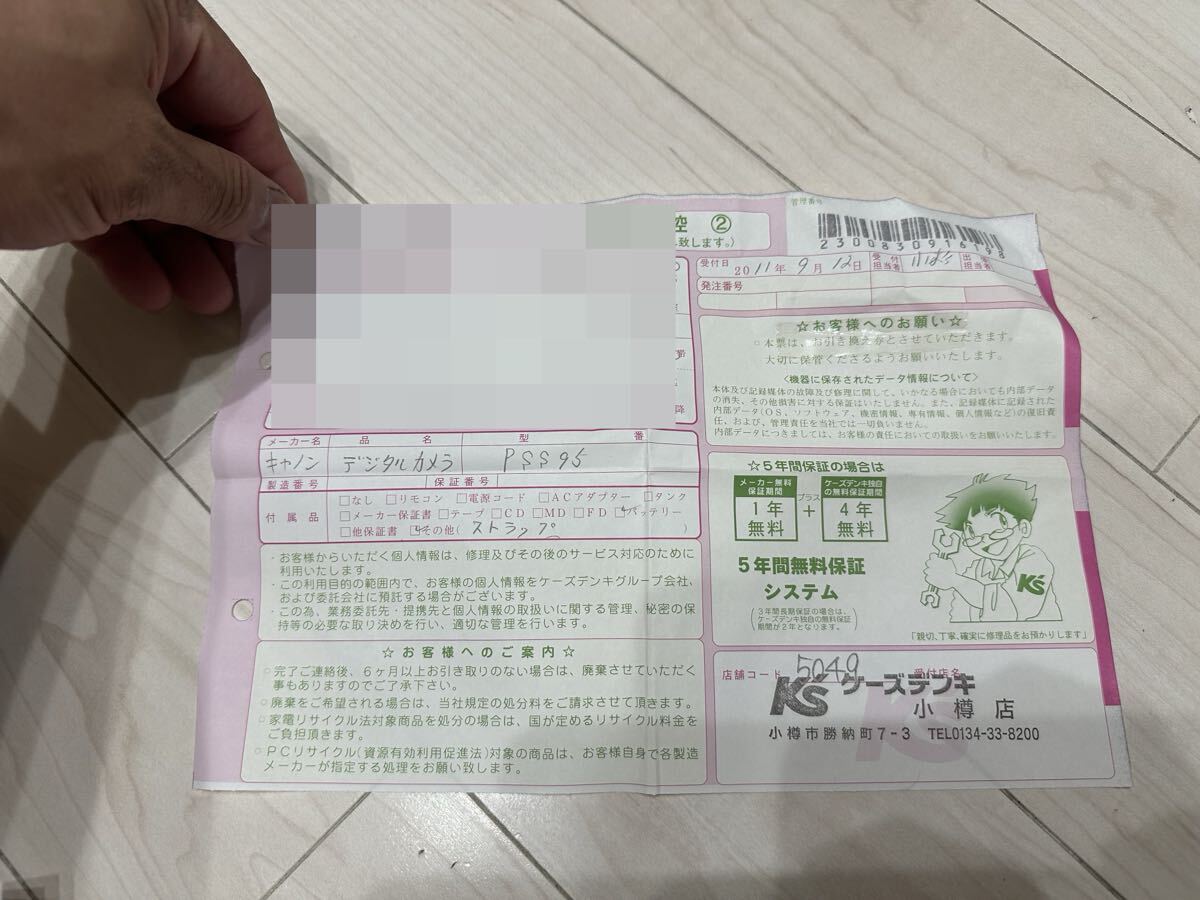 控 ②
致します。)
管理番号
2300830916198
受付日 2011年 9月 12日 受付担当者 出荷担当者
発注番号
☆お客様へのお願い☆
○本票は、お引き換えかとさせていただきます。
大切に保管くださるようお願いいたします。
〈機器に保存されたデータ情報について〉
本体及び記録媒体の故障及び修理に関して、いかなる場合においても内部データ
の消失、その他損害に対する保証はいたしません。また、記録媒体に記録された
内部データ(OS、ソフトウェア、機密情報、専有情報、個人情報など)の復旧責
任、および、管理責任を当社では一切負いません。
内部データにつきましては、お客様の責任においての取扱いをお願いいたします。
メーカー名 品名 型番
キャノン デジタルカメラ PSS95
製造番号 保証番号
付属品
□なし □リモコン □電源コード □ACアダプター □タンク
□メーカー保証書 □テープ □CD □MD □FD □バッテリー
□他保証書 □その他( ストラップ )
・お客様からいただく個人情報は、修理及びその後のサービス対応のために
利用いたします。
・この利用目的の範囲内で、お客様の個人情報をケーズデンキグループ会社、
および委託会社に預託する場合がございます。
・この為、業務委託先・提携先と個人情報の取扱いに関する管理、秘密の保
持等の必要な取り決めを行い、適切な管理を行います。
☆お客様へのご案内☆
○完了ご連絡後、6ヶ月以上お引き取りのない場合は、廃棄させていただく
事もありますのでご了承下さい。
○廃棄をご希望される場合は、当社規定の処分料をご請求させて頂きます。
○家電リサイクル法対象商品を処分の場合は、国が定めるリサイクル料金を
ご負担頂きます。
○PCリサイクル(資源有効利用促進法)対象の商品は、お客様自身で各製造
メーカーが指定する処理をお願い致します。
☆5年間保証の場合は
メーカー無料保証期間 1年無料
プラス
+
ケーズデンキ独自の無料保証期間 4年無料
5年間無料保証
システム
(3年間長期保証の場合は、
ケーズデンキ独自の無料保証
期間が2年となります。)
K's
「親切、丁寧、確実に修理品をお預かりします」
店舗コード 5049 受付店名
K's ケーズデンキ
小樽店
小樽市勝納町7-3 TEL0134-33-8200